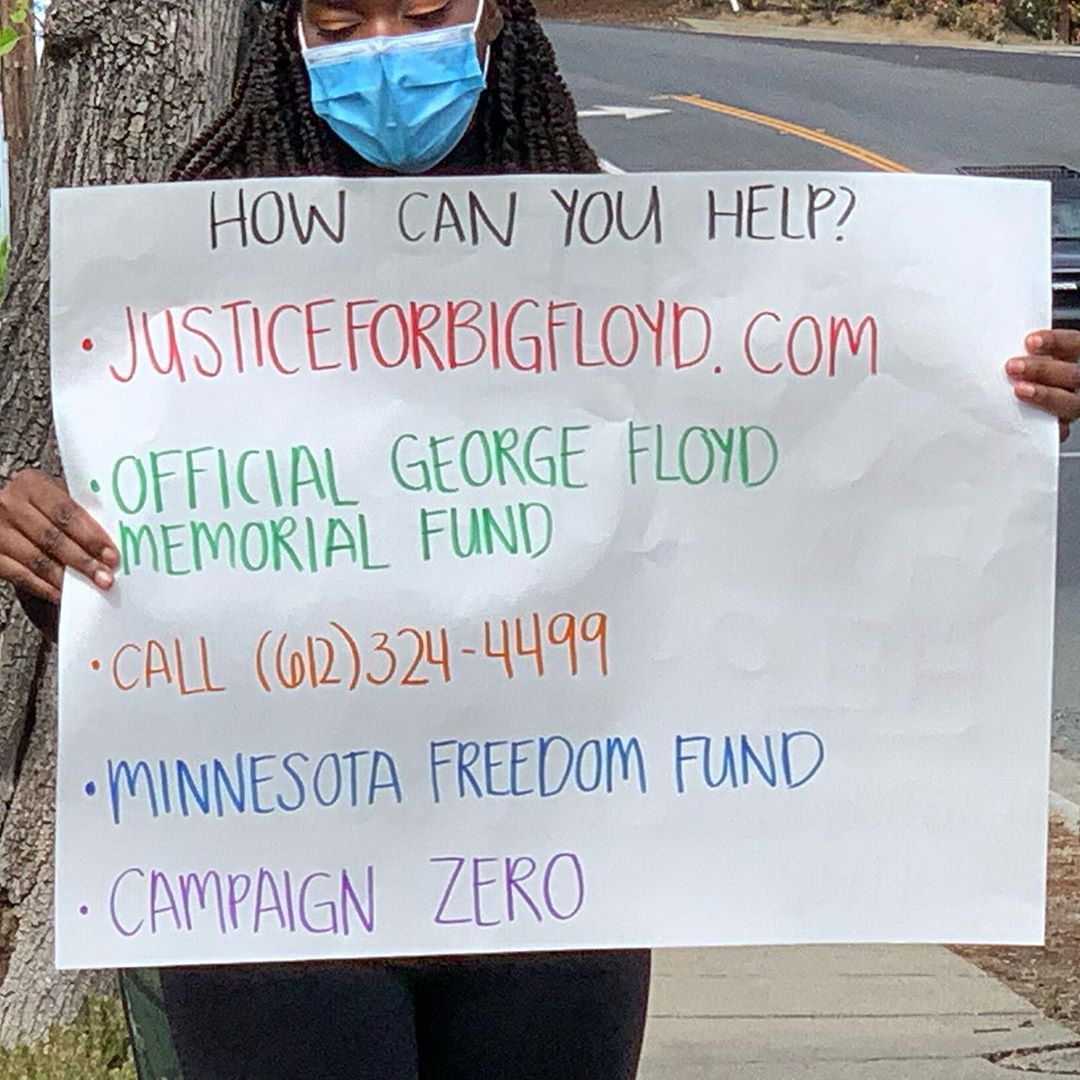 HOW CAN YOU HELP?
• JUSTICEFORBIGFLOYD.COM
• OFFICIAL GEORGE FLOYD
MEMORIAL FUND
• CALL (612)324-4499
• MINNESOTA FREEDOM FUND
• CAMPAIGN ZERO